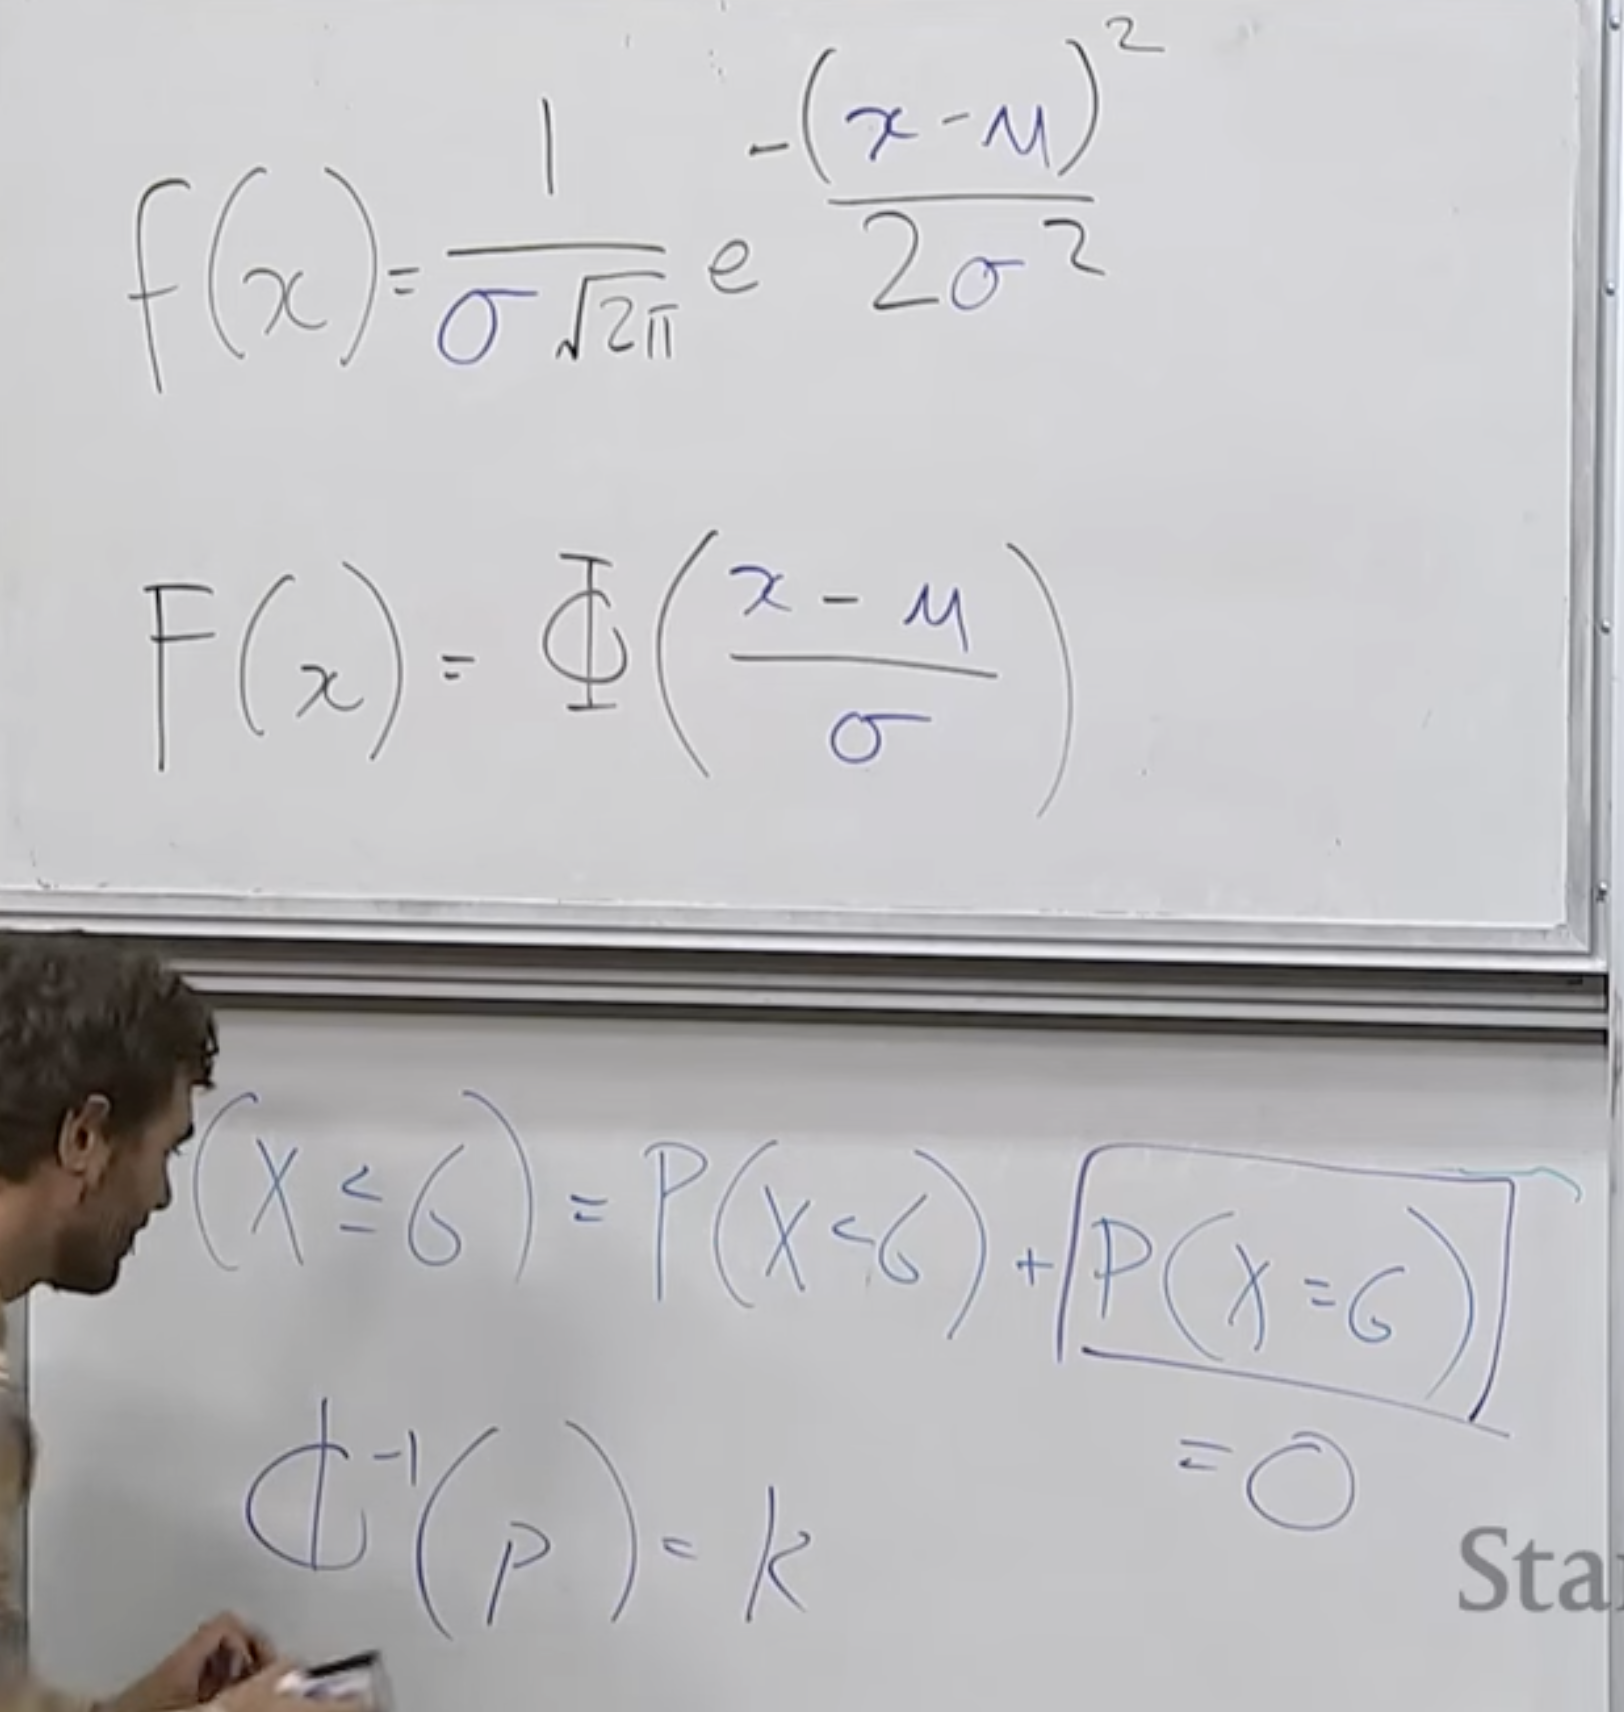 f(x) = 1/(σ√2π) e^(-(x-μ)²/(2σ²))
F(x) = Φ((x-μ)/σ)
(X ≤ 6) = P(X < 6) + P(X = 6)
= 0
Φ⁻¹(p) = k
Sta